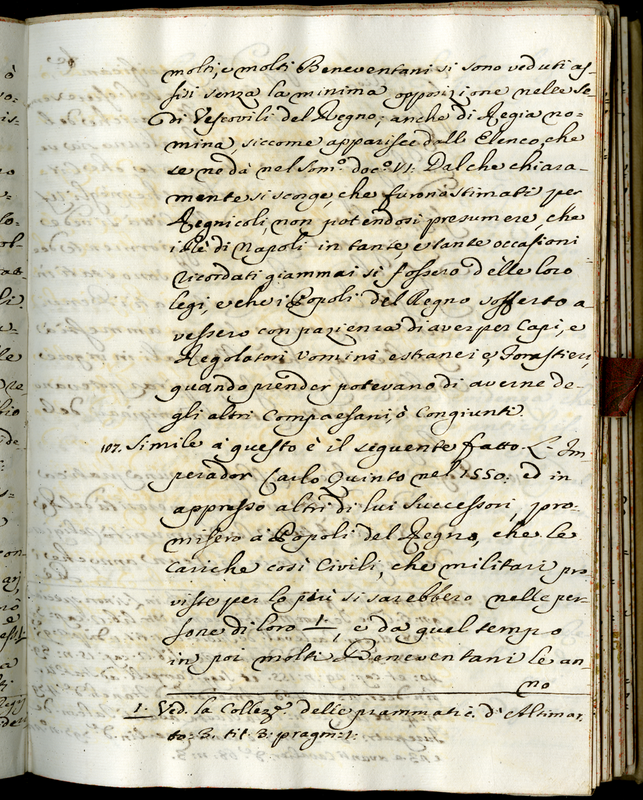 molti, e molti Beneventani si sono veduti as-
sisi senza la minima opposizione nelle Se-
di Vescovili del Regno; anche di Regia no-
mina, siccome apparisce dall' Elenco, che
se ne dà nel Som.º doc.º VI. Dal che chiara-
mente si scorge, che furon stimati per
Regnicoli, non potendosi presumere, che
i Rè di Napoli in tante, e tante occasioni
ricordati giammai si fossero delle loro
legi, e che i Popoli del Regno sofferto a-
vessero con pazienza di aver per Capi, e
Regolatori Uomini estranei e, Forastieri,
quando prender potevano di averne de-
gli altri Compaesani, ò Congiunti.
107. Simile a questo è il seguente fatto. L' Im-
perador Carlo Quinto nel 1550: ed in
appresso altri di lui Successori, pro-
misero a Popoli del Regno, che le
Cariche così Civili, che militari pro
viste per lo più si sarebbero nelle per-
sone di loro 1., e da quel tempo
in poi molti Beneventani le an-
no
1. Ved. la Collez.e delle prammatic. d' Altimar.
to: 3. tit. 3: pragm: 1.